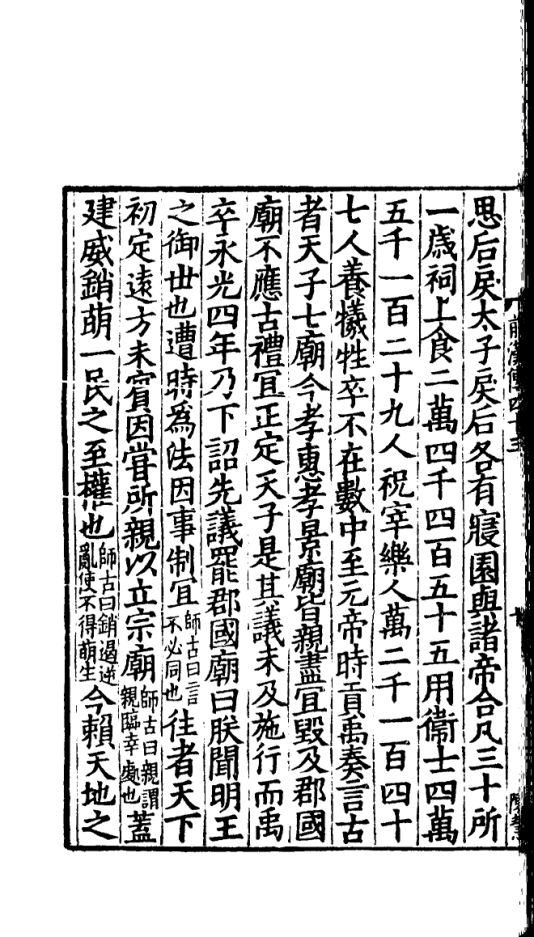 思后戾太子戾后各有寢園與諸帝合凡三十所
一歲祠上食二萬四千四百五十五用衞士四萬
五千一百二十九人祝宰樂人萬二千一百四十
七人養犧牲卒不在數中至元帝時貢禹奏言古
者天子七廟今孝惠孝景廟皆親盡宜毀及郡國
廟不應古禮宜正定天子是其議未及施行而禹
卒永光四年乃下詔先議罷郡國廟曰朕聞明王
之御世也遭時爲法因事制宜師古曰言不必同也往者天下
初定遠方未賓因嘗所親以立宗廟師古曰親謂親臨幸處也蓋
建威銷萌一民之至權也師古曰銷遏逆亂使不得萌生今賴天地之